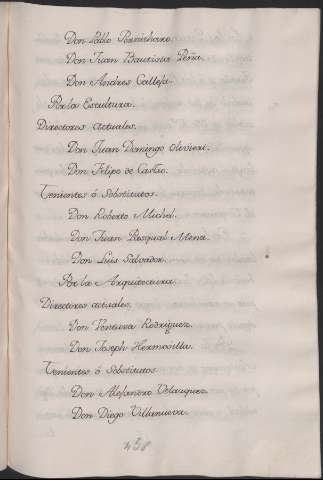 Don Pablo Pernicharo.
Don Juan Bautista Peña.
Don Andres Calleja.
Por la Escultura.
Directores actuales.
Don Juan Domingo Olivieri.
Don Felipe de Castro.
Tenientes ó Substitutos.
Don Roberto Michel.
Don Juan Pasqual Mena.
Don Luis Salvador.
Por la Arquitectura.
Directores actuales.
Don Ventura Rodriguez.
Don Joseph Hermosilla.
Tenientes ó Substitutos
Don Alejandro Velazquez.
Don Diego Villanueva.